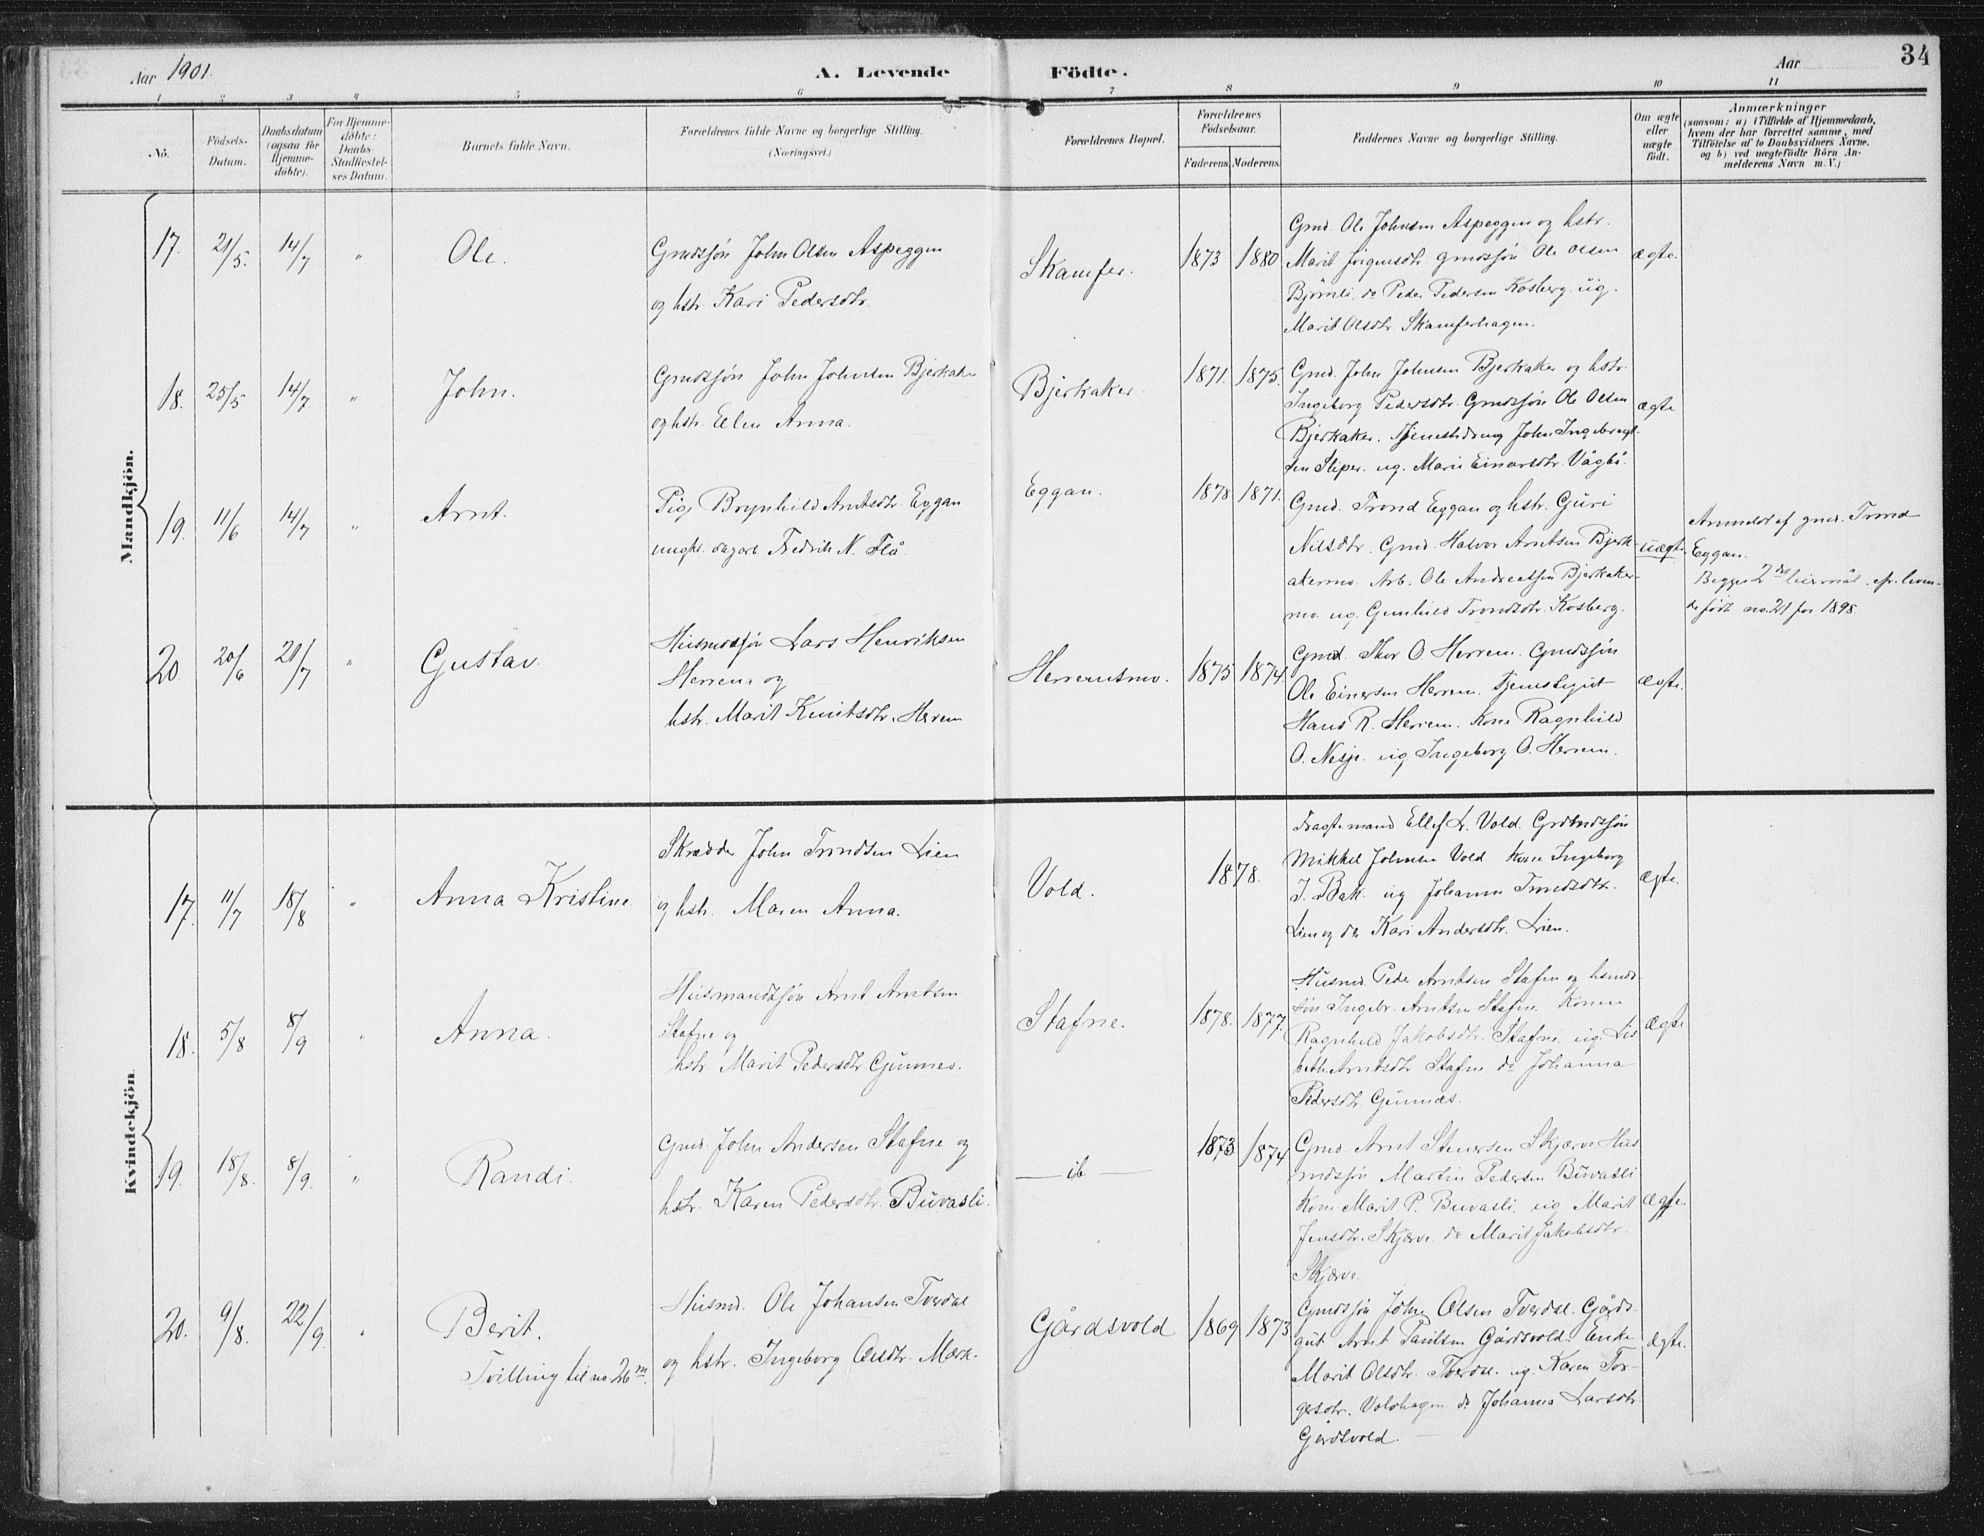 Aar 1901.
A. Levende Födte.
Aar
34
1 2 3 4 5 6 7 8 9 10 11
No.
Födsels-Datum.
Daabsdatum (ogsaa for Hjemme-döbte).
For Hjemme-döbte: Daabs-Stadfæstel-ses Datum.
Barnets fulde Navn.
Forældrenes fulde Navne og borgerlige Stilling.
(Næringsvei.)
Forældrenes Bopæl.
Forældrenes Födselsaar.
Faderens. Moderens.
Faddernes Navne og borgerlige Stilling.
Om ægte eller uægte födt.
Anmærkninger
(saasom: a) i Tilfælde af Hjemmedaab,
hvem der har forrettet samme, med
Tilföielse af to Daabsvidners Navne.
og b) ved uægtefödte Börn An-
melderens Navn m.V.)
Mandkjön.
17. 21/5. 14/7 " Ole.
Gmdsjön John Olsen Aspeggen
og hstr. Kari Pedersdtr.
Skamfer. 1873 1880
Gmd. Ole Johnsen Aspeggen og hstr.
Marit Jörgensdtr. gmdsjön Ole Olsen
Bjørnli. do Peder Pedersen Kosberg. ug.
Marit Olsdtr. Skamferhagen.
ægte.
18. 25/5 14/7. " John.
Gmdsjön John Johnsen Bjerkaker
og hstr. Ellen Anna.
Bjerkaker. 1871. 1875.
Gmd. John Johnsen Bjerkaker og hstr.
Ingeborg Pedersdtr. Gmdsjön Ole Olsen
Bjerkaker. Tjenestedreng John Ingebrigt-
sen Sliper. ug. Marie Einarsdtr. Vågbö.
ægte
19. 11/6 14/7 " Arnt.
Pig. Brynhild Arntsdtr. Eggan
ungk. Fredrik N. Flå.
Eggan. 1878 1871.
Gmd. Trond Eggan og hstr. Guri
Nilsdtr. Gmd. Halvor Arntsen Bjerk-
akermo. Arb. Ole Andreassen Bjerkaker-
mo. ug. Gunhild Trondsdtr. Kosberg.
uægte.
Anmeldt af gmd. Trond
Eggan.
Begges 2det leiermål. cfr. leven-
de födt no. 21 for 1898.
20. 20/6 21/7 " Gustav.
Husmdsjön Lars Henriksen
Herrem og
hstr. Marit Knutsdtr. Herrem
Herremsmo. 1875 1874.
Gmd. Thor O. Herrem. Gmdsjön
Ole Einersen Herrem. Tjenestegut
Hans R. Herrem. Kone Ragnhild
O. Nesje. ug Ingeborg O. Herrem.
ægte.
Kvindekjön.
17. 11/7 18/8 " Anna Kristine.
Skrædder John Trondsen Lien
og hstr. Maren Anna.
Vold. 1878.
Ellef L. Vold.
Mikkel Johnsen Vold. Kone Ingeborg
J. Bak. ug Johanna Trondsdtr.
Lien og do Kari Andersdtr. Lien.
ægte.
18. 5/8 8/9 " Anna.
Husmandssjön Arnt Arntsen
Stafne og
hstr. Marit Pedersdtr Gunnes.
Stafne. 1878. 1877.
Husmd. Peder Arntsen Stafne og husmds
sön Ingebr. Arntsen Stafne. Konen
Ragnhild Jakobsdtr. Stafne. ug. Lis
beth Arntsdtr. Stafne. do Johanna
Pedersdtr. Gunnes.
ægte
19. 18/8. 8/9. " Randi.
Gmd. John Andersen Stafne og
hstr. Karen Pedersdtr. Buvasli.
— ib — 1873 1874
Gmd. Arnt Stenersen Skjærve. Hus
mdsjön Martin Pedersen Buvasli
Kone Marit P. Buvasli. ug. Marit
Jensdtr. Skjærve. do Marit Jakobsdtr.
Skjærve.
ægte.
20. 9/8. 22/9. " Berit.
Tvilling til no 26 m.
Husmd. Ole Johansen Tverdal
og hstr. Ingeborg Olsdtr. Mærk.
Gårdsvold 1869 1873
Gmdsjön John Olsen Tverdal. Gårds-
gut Arnt Paulsen Gårdsvold. Enke
Marit Olsdtr. Tverdal. ug. Karen Tor-
gersdtr. Voldhagen do Johanna Larsdtr.
Gårdsvold.
ægte.